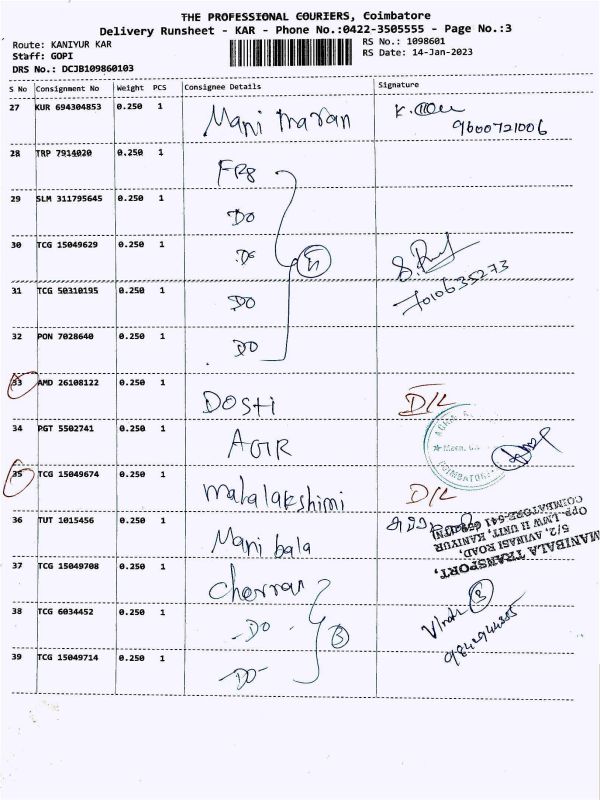 THE PROFESSIONAL COURIERS, Coimbatore
Delivery Runsheet - KAR - Phone No.:0422-3505555 - Page No.:3
Route: KANIYUR KAR
RS No.: 1098601
Staff: GOPI
RS Date: 14-Jan-2023
DRS No.: DCJB109860103
S No Consignment No Weight PCS Consignee Details Signature
27 KUR 694304853 0.250 1 Mani maran
9600721006
28 TRP 7914020 0.250 1 FRg
29 SLM 311795645 0.250 1 DO
30 TCG 15049629 0.250 1 DO
7010635273
31 TCG 50310195 0.250 1 DO
32 PON 7028640 0.250 1 DO
33 AMD 26108122 0.250 1 DOSti D/L
34 PGT 5502741 0.250 1 AGTR
COIMBATORE
35 TCG 15049674 0.250 1 mahalakshimi D/L
36 TUT 1015456 0.250 1 Mani bala
MANIBALA TRANSPORT,
5/2, AVINASI ROAD,
Opp. LMW II UNIT, KANIYUR
COIMBATORE-641
37 TCG 15049708 0.250 1 Cherran
38 TCG 6034452 0.250 1 -DO- 3
3
9842944385
39 TCG 15049714 0.250 1 -DO-